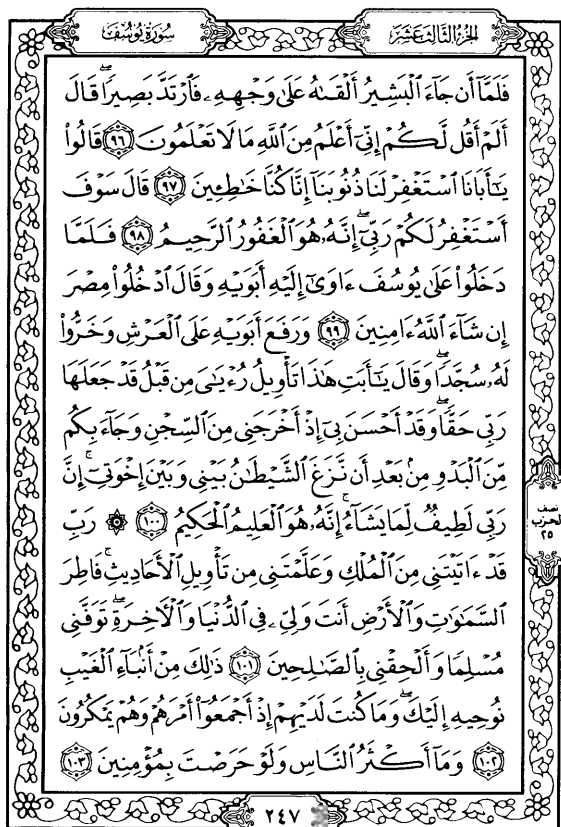 سُورَةُ يُوسُفَ
الجُزْءُ الثَّالِثَ عَشَرَ
فَلَمَّآ أَن جَآءَ ٱلْبَشِيرُ أَلْقَىٰهُ عَلَىٰ وَجْهِهِۦ فَٱرْتَدَّ بَصِيرًاۖ قَالَ
أَلَمْ أَقُل لَّكُمْ إِنِّىٓ أَعْلَمُ مِنَ ٱللَّهِ مَا لَا تَعْلَمُونَ ٩٦ قَالُوا۟
يَـٰٓأَبَانَا ٱسْتَغْفِرْ لَنَا ذُنُوبَنَآ إِنَّا كُنَّا خَـٰطِـِٔينَ ٩٧ قَالَ سَوْفَ
أَسْتَغْفِرُ لَكُمْ رَبِّىٓۖ إِنَّهُۥ هُوَ ٱلْغَفُورُ ٱلرَّحِيمُ ٩٨ فَلَمَّا
دَخَلُوا۟ عَلَىٰ يُوسُفَ ءَاوَىٰٓ إِلَيْهِ أَبَوَيْهِ وَقَالَ ٱدْخُلُوا۟ مِصْرَ
إِن شَآءَ ٱللَّهُ ءَامِنِينَ ٩٩ وَرَفَعَ أَبَوَيْهِ عَلَى ٱلْعَرْشِ وَخَرُّوا۟
لَهُۥ سُجَّدًاۖ وَقَالَ يَـٰٓأَبَتِ هَـٰذَا تَأْوِيلُ رُءْيَـٰىَ مِن قَبْلُ قَدْ جَعَلَهَا
رَبِّى حَقًّاۖ وَقَدْ أَحْسَنَ بِىٓ إِذْ أَخْرَجَنِى مِنَ ٱلسِّجْنِ وَجَآءَ بِكُم
مِّنَ ٱلْبَدْوِ مِنۢ بَعْدِ أَن نَّزَغَ ٱلشَّيْطَـٰنُ بَيْنِى وَبَيْنَ إِخْوَتِىٓۚ إِنَّ
رَبِّى لَطِيفٌ لِّمَا يَشَآءُۚ إِنَّهُۥ هُوَ ٱلْعَلِيمُ ٱلْحَكِيمُ ١٠٠ ۞ رَبِّ
قَدْ ءَاتَيْتَنِى مِنَ ٱلْمُلْكِ وَعَلَّمْتَنِى مِن تَأْوِيلِ ٱلْأَحَادِيثِۚ فَاطِرَ
ٱلسَّمَـٰوَٰتِ وَٱلْأَرْضِ أَنتَ وَلِىِّۦ فِى ٱلدُّنْيَا وَٱلْـَٔاخِرَةِۖ تَوَفَّنِى
مُسْلِمًا وَأَلْحِقْنِى بِٱلصَّـٰلِحِينَ ١٠١ ذَٰلِكَ مِنْ أَنۢبَآءِ ٱلْغَيْبِ
نُوحِيهِ إِلَيْكَۖ وَمَا كُنتَ لَدَيْهِمْ إِذْ أَجْمَعُوٓا۟ أَمْرَهُمْ وَهُمْ يَمْكُرُونَ
١٠٢ وَمَآ أَكْثَرُ ٱلنَّاسِ وَلَوْ حَرَصْتَ بِمُؤْمِنِينَ ١٠٣
نصف
الحزب
٢٥
٢٤٧